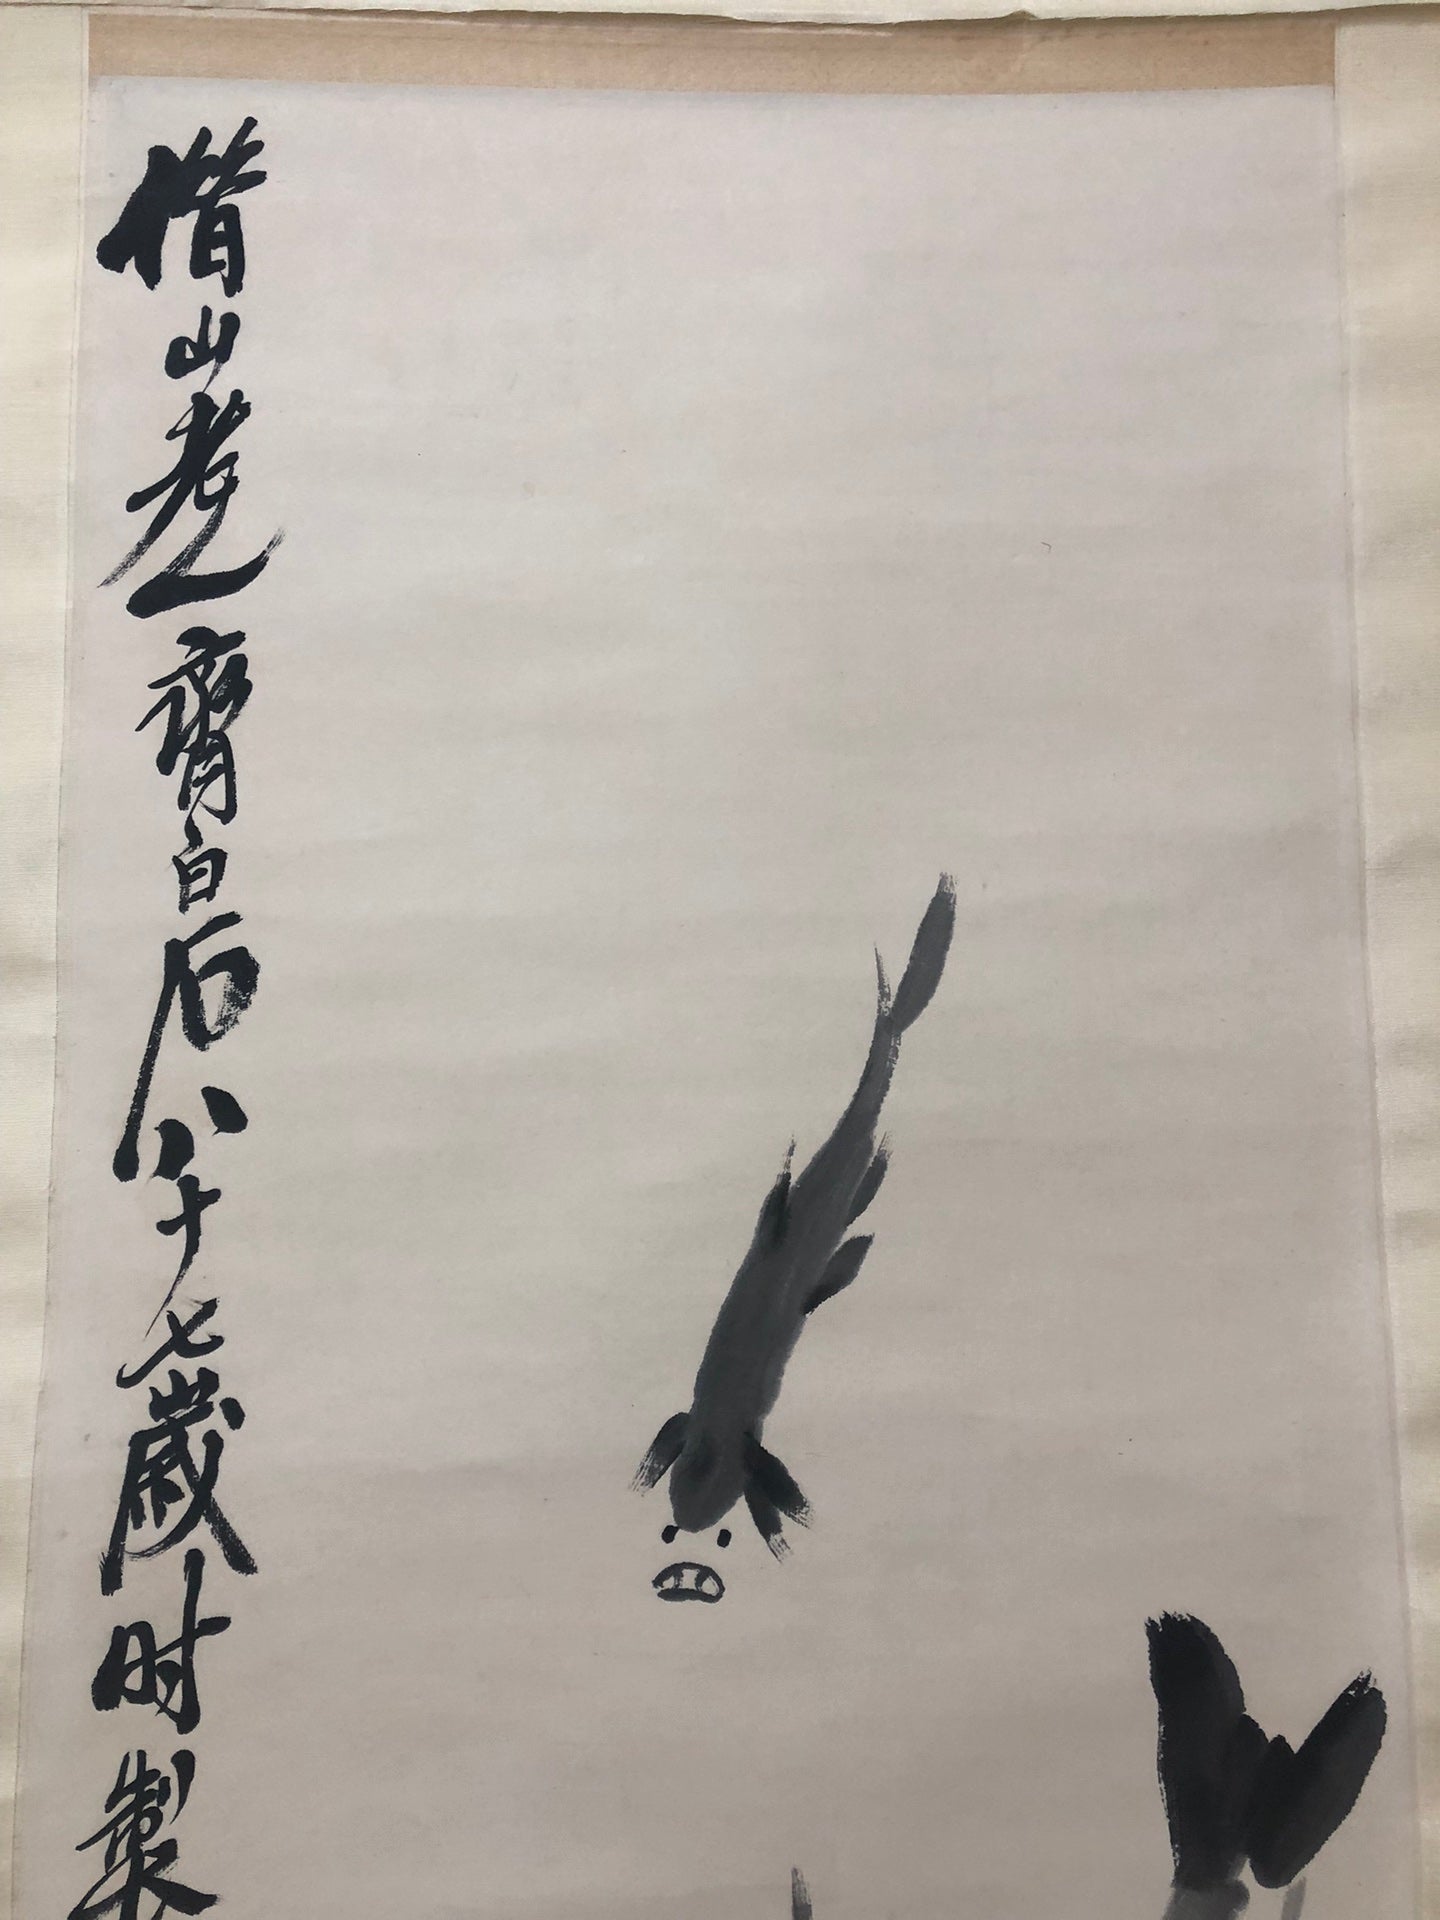 借山老人齊白石八十七歲時製